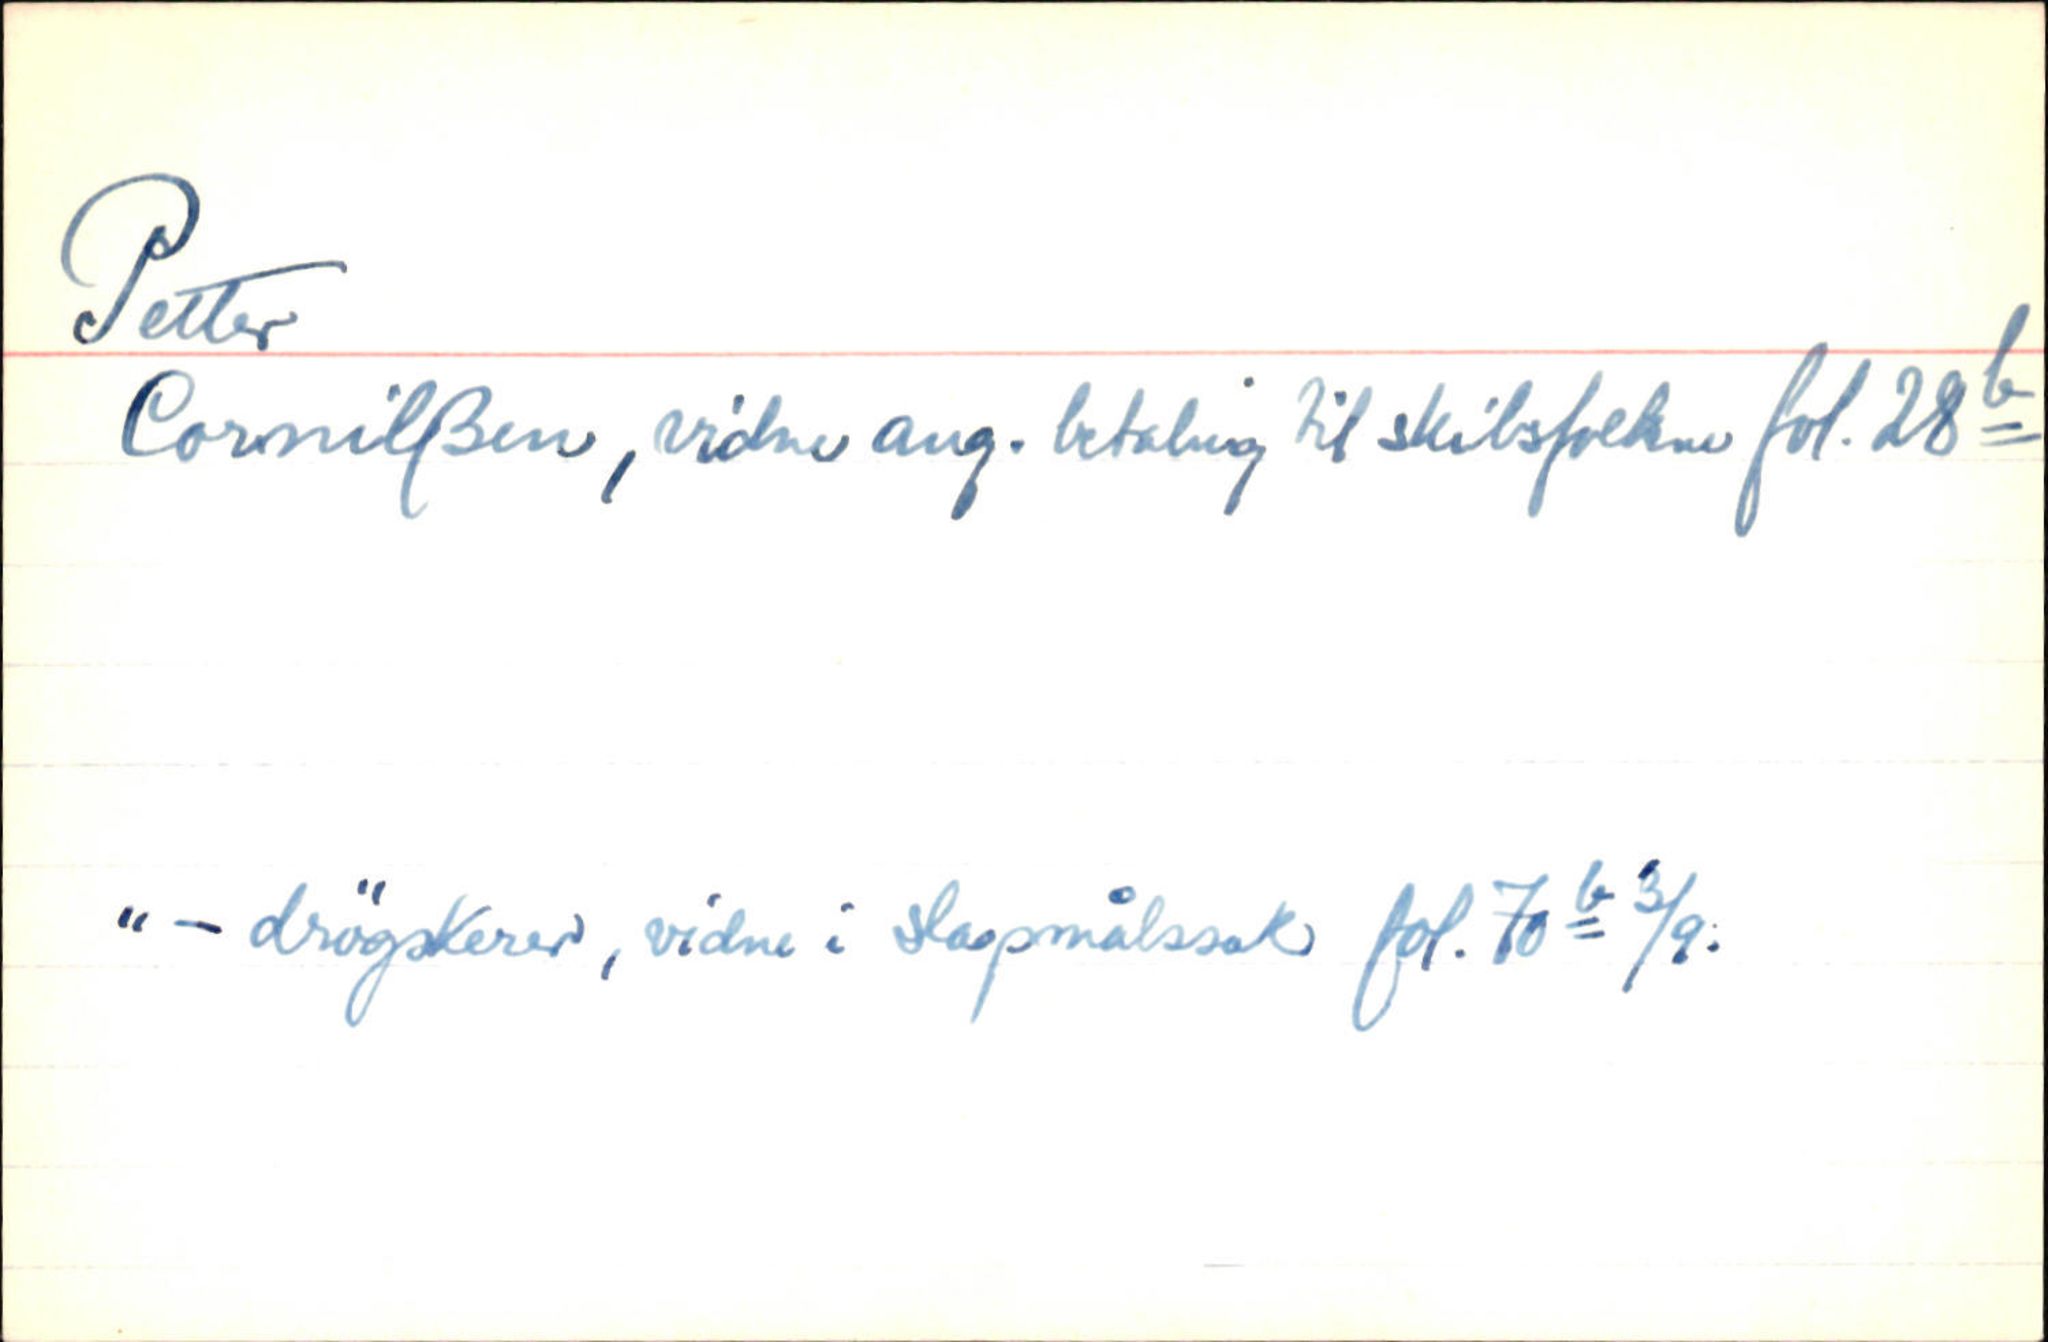 Petter
Cornilßen, vidne ang. betaling til skibsfolkene fol. 28 b
"– drögskerer, vidne i slagsmålssak fol. 70 b 3/9.